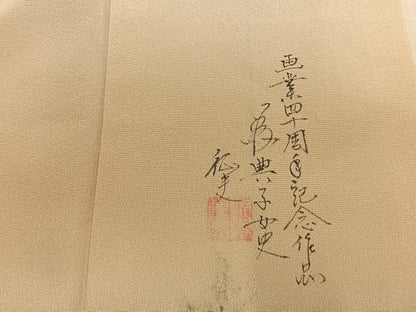 画業四十周年記念作品
為 典子女史
征史